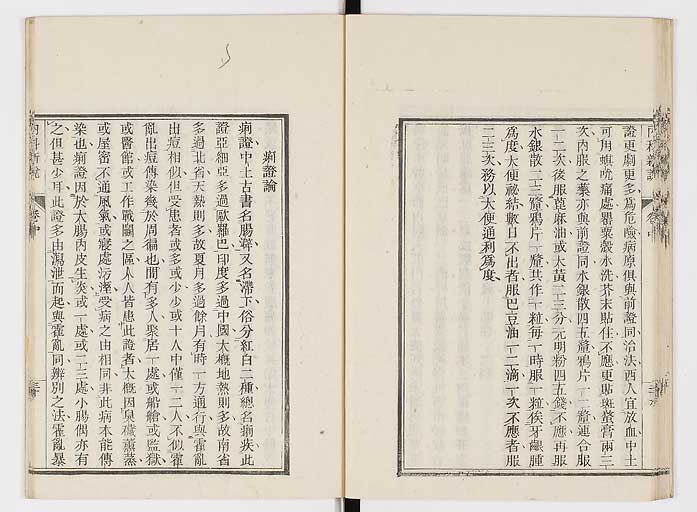 證更劇更多爲危險病原俱與前證同治法西人宜放血中土
可用蜞吮痛處罌粟殼水洗芥末貼住不應更貼斑蝥膏兩三
次內服之藥亦與前證同水銀散四五釐鴉片一二釐連合服
一二次後服蓖麻油或大黃二三分元明粉四五錢不應再服
水銀散二三釐鴉片一釐共作一粒每一時服一粒俟牙齦腫
爲度大便祕結數日不出者服巴豆油一二滴一次不應者服
二三次務以大便通利爲度
痢證論
痢證中土古書名腸澼又名滯下俗分紅白二種總名痢疾此
證亞細亞多過歐羅巴印度多過中國大概地熱則多故南省
多過北省天熱則多故夏月多過餘月有時一方通行與霍亂
由痘相似但受患者或多或少少或十人中僅一二人不似霍
亂出痘傳染幾於周徧也間有多人聚居一處或船艙或監獄
或醫館或工作戰鬭之區人人皆患此證者大概因臭穢薰蒸
或屋密不通風氣或寢處污溼受病之由相同非此病本能傳
染也痢證因於大腸內皮生炎或一處或二三處小腸偶亦有
之但甚少耳此證多由瀉泄而起與霍亂同辨別之法霍亂暴
內科新說
卷中